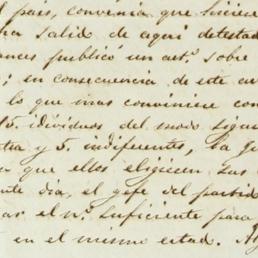 l país, convenia que hiciese
ha salid de aqui detestad
ances publicó un art.º sobre
; en consecuencia de este ar
lo que mas conviniese con
15. individuos del modo sigui
tra y 5. indiferentes, la Ju
que ellos eligiesen sus
ente dia, el gefe del partid
ar el n.º suficiente para
en el mismo estad.